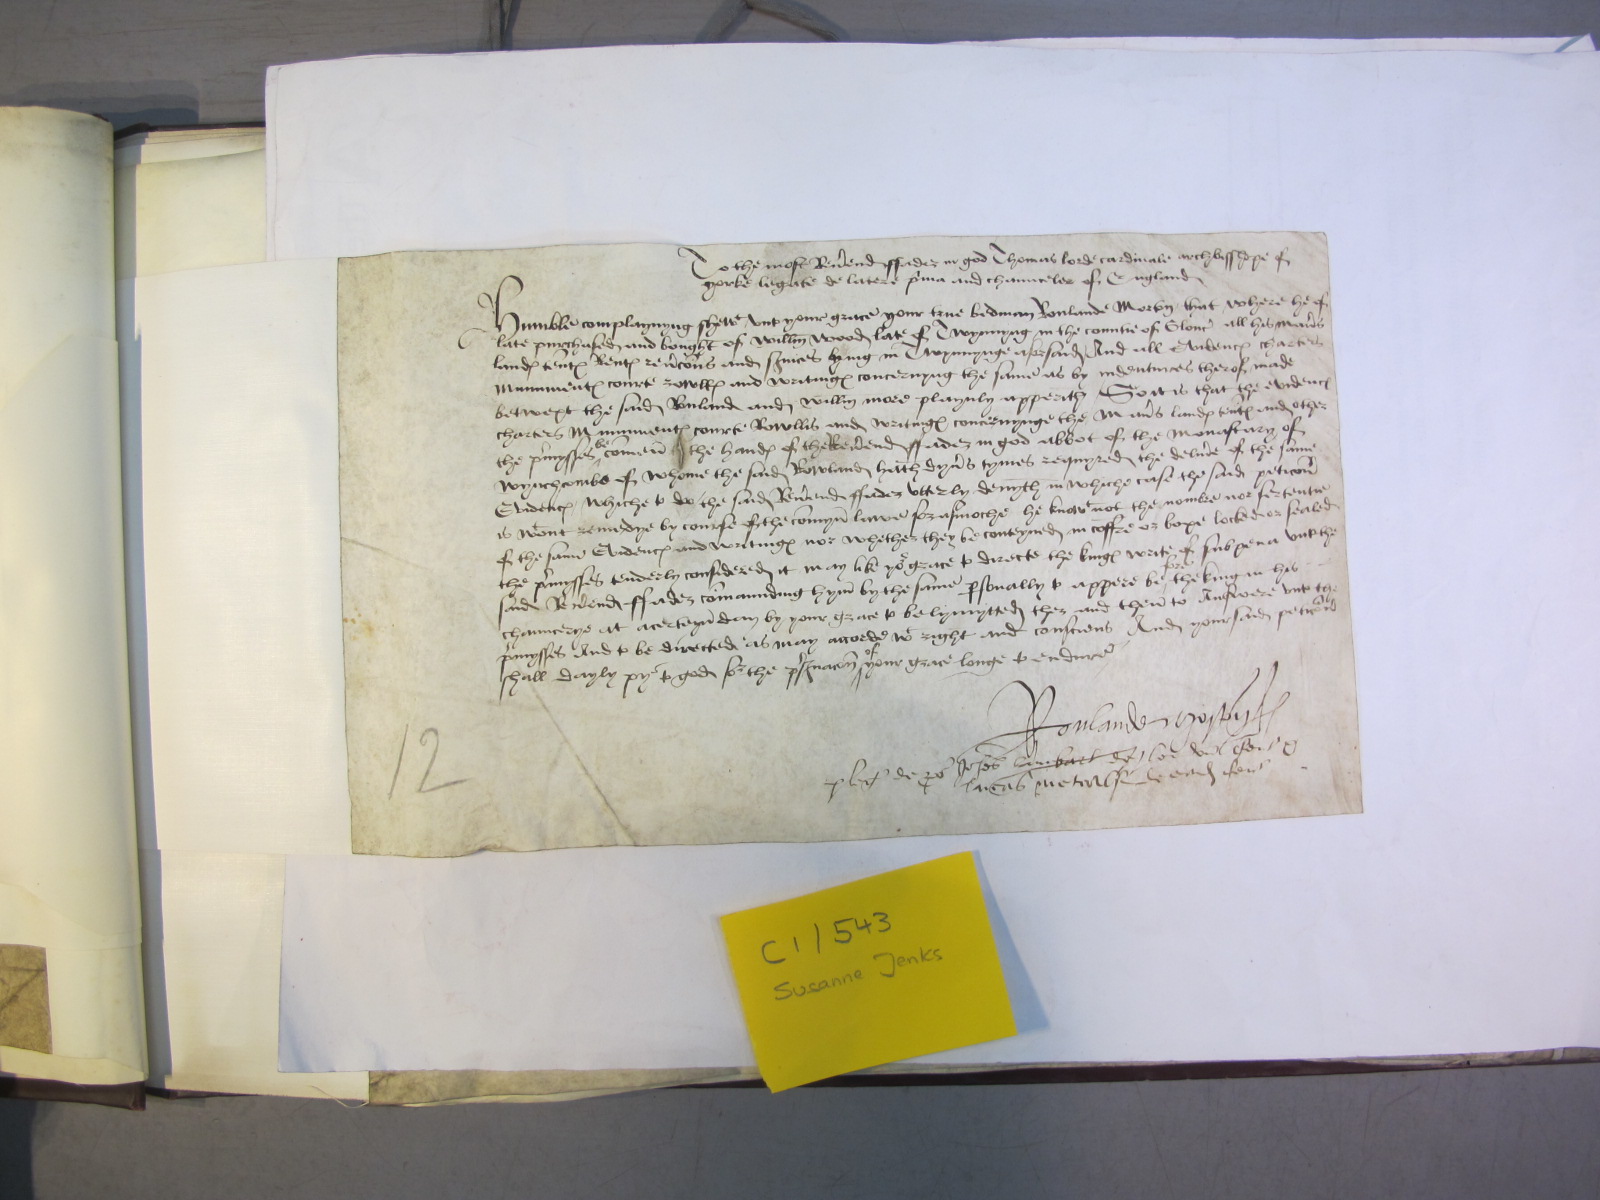 To the most Rev'end ffader in god Thomas lorde cardinale archbisshope of
yorke legate de latere p'ma and chaunceler of England
Humble complaynyng shewe vnto your grace your true bedman Roulande Mortby that where he of
late purchased and bought of Will'm Wood late of Twynnyng in the countie of Glouc' all his man's
land tent' Rent' rev'cons and s'uices lying in Twynnynge aforsaid And all Evidenc' charters
Munimentes courte rowlles and writinges concernyng the same as by indentures therof made
betwext the said Rouland and Will'm more playnly apperith So it is that the evidenc'
charters Munimentes courte Rowllis and writinges concernynge the Man's land tent' and other
the p'mysses be comen to the handes of the Rev'end ffader in god abbot of the Monastary of
Wynchcombe of whome the said Rowland hath dyu's tymes requyred the delyu'e of the same
Evidenc' whiche to do the said Rev'end ffader vtterly denyth in whiche case the said peticon'
is wout remedye by course of the comyn lawe forasmoche he knowe not the nombre nor sertentie
of the same Evidenc' and writinges nor whether they be conteyned in coffre or boxe locked or sealed
the p'mysses tenderly considered it may like yor grace to directe the kinges write of subpena vnto the
said Rev'end ffader comaunding hym by the same p'sonally to appere before the king in his
chauncerye at a certeyn day by your grace to be lymytted ther and then to Answere vnto the
p'mysses And to be directed as may accorde wt right and consciens And your said peticon'
shall dayly pray to god for the p's'uacon of your grace longe to endure
Roulande
pleg' de pros' Joh'es de
lucas Metcalff de ead'
12
C1/543
Susanne Jenks